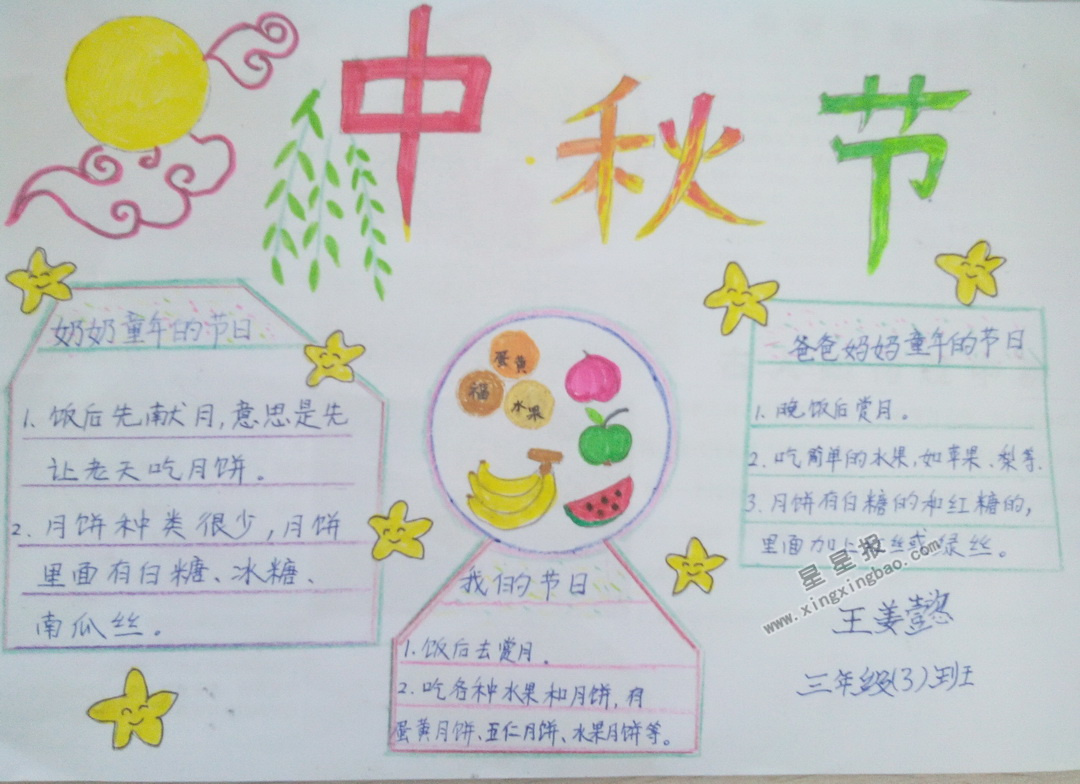 中秋节
奶奶童年的节日
1. 饭后先献月,意思是先
让老天吃月饼。
2. 月饼种类很少,月饼
里面有白糖、冰糖、
南瓜丝。
蛋黄
福
水果
我的节日
1. 饭后去赏月.
2. 吃各种水果和月饼,有
蛋黄月饼、五仁月饼、水果月饼等。
爸爸妈妈童年的节日
1. 晚饭后赏月。
2. 吃简单的水果,如苹果、梨等.
3. 月饼有白糖的和红糖的,
里面加上红丝或绿丝。
星星报
www.xingxingbao.com
王姜懿
三年级(3)班